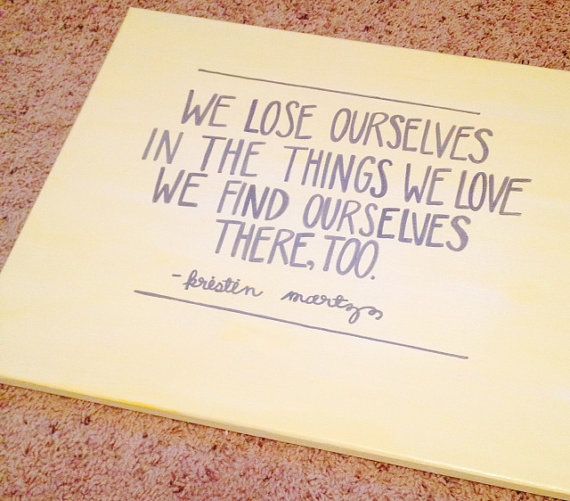 WE LOSE OURSELVES
IN THE THINGS WE LOVE
WE FIND OURSELVES
THERE, TOO.
- kristin martzs